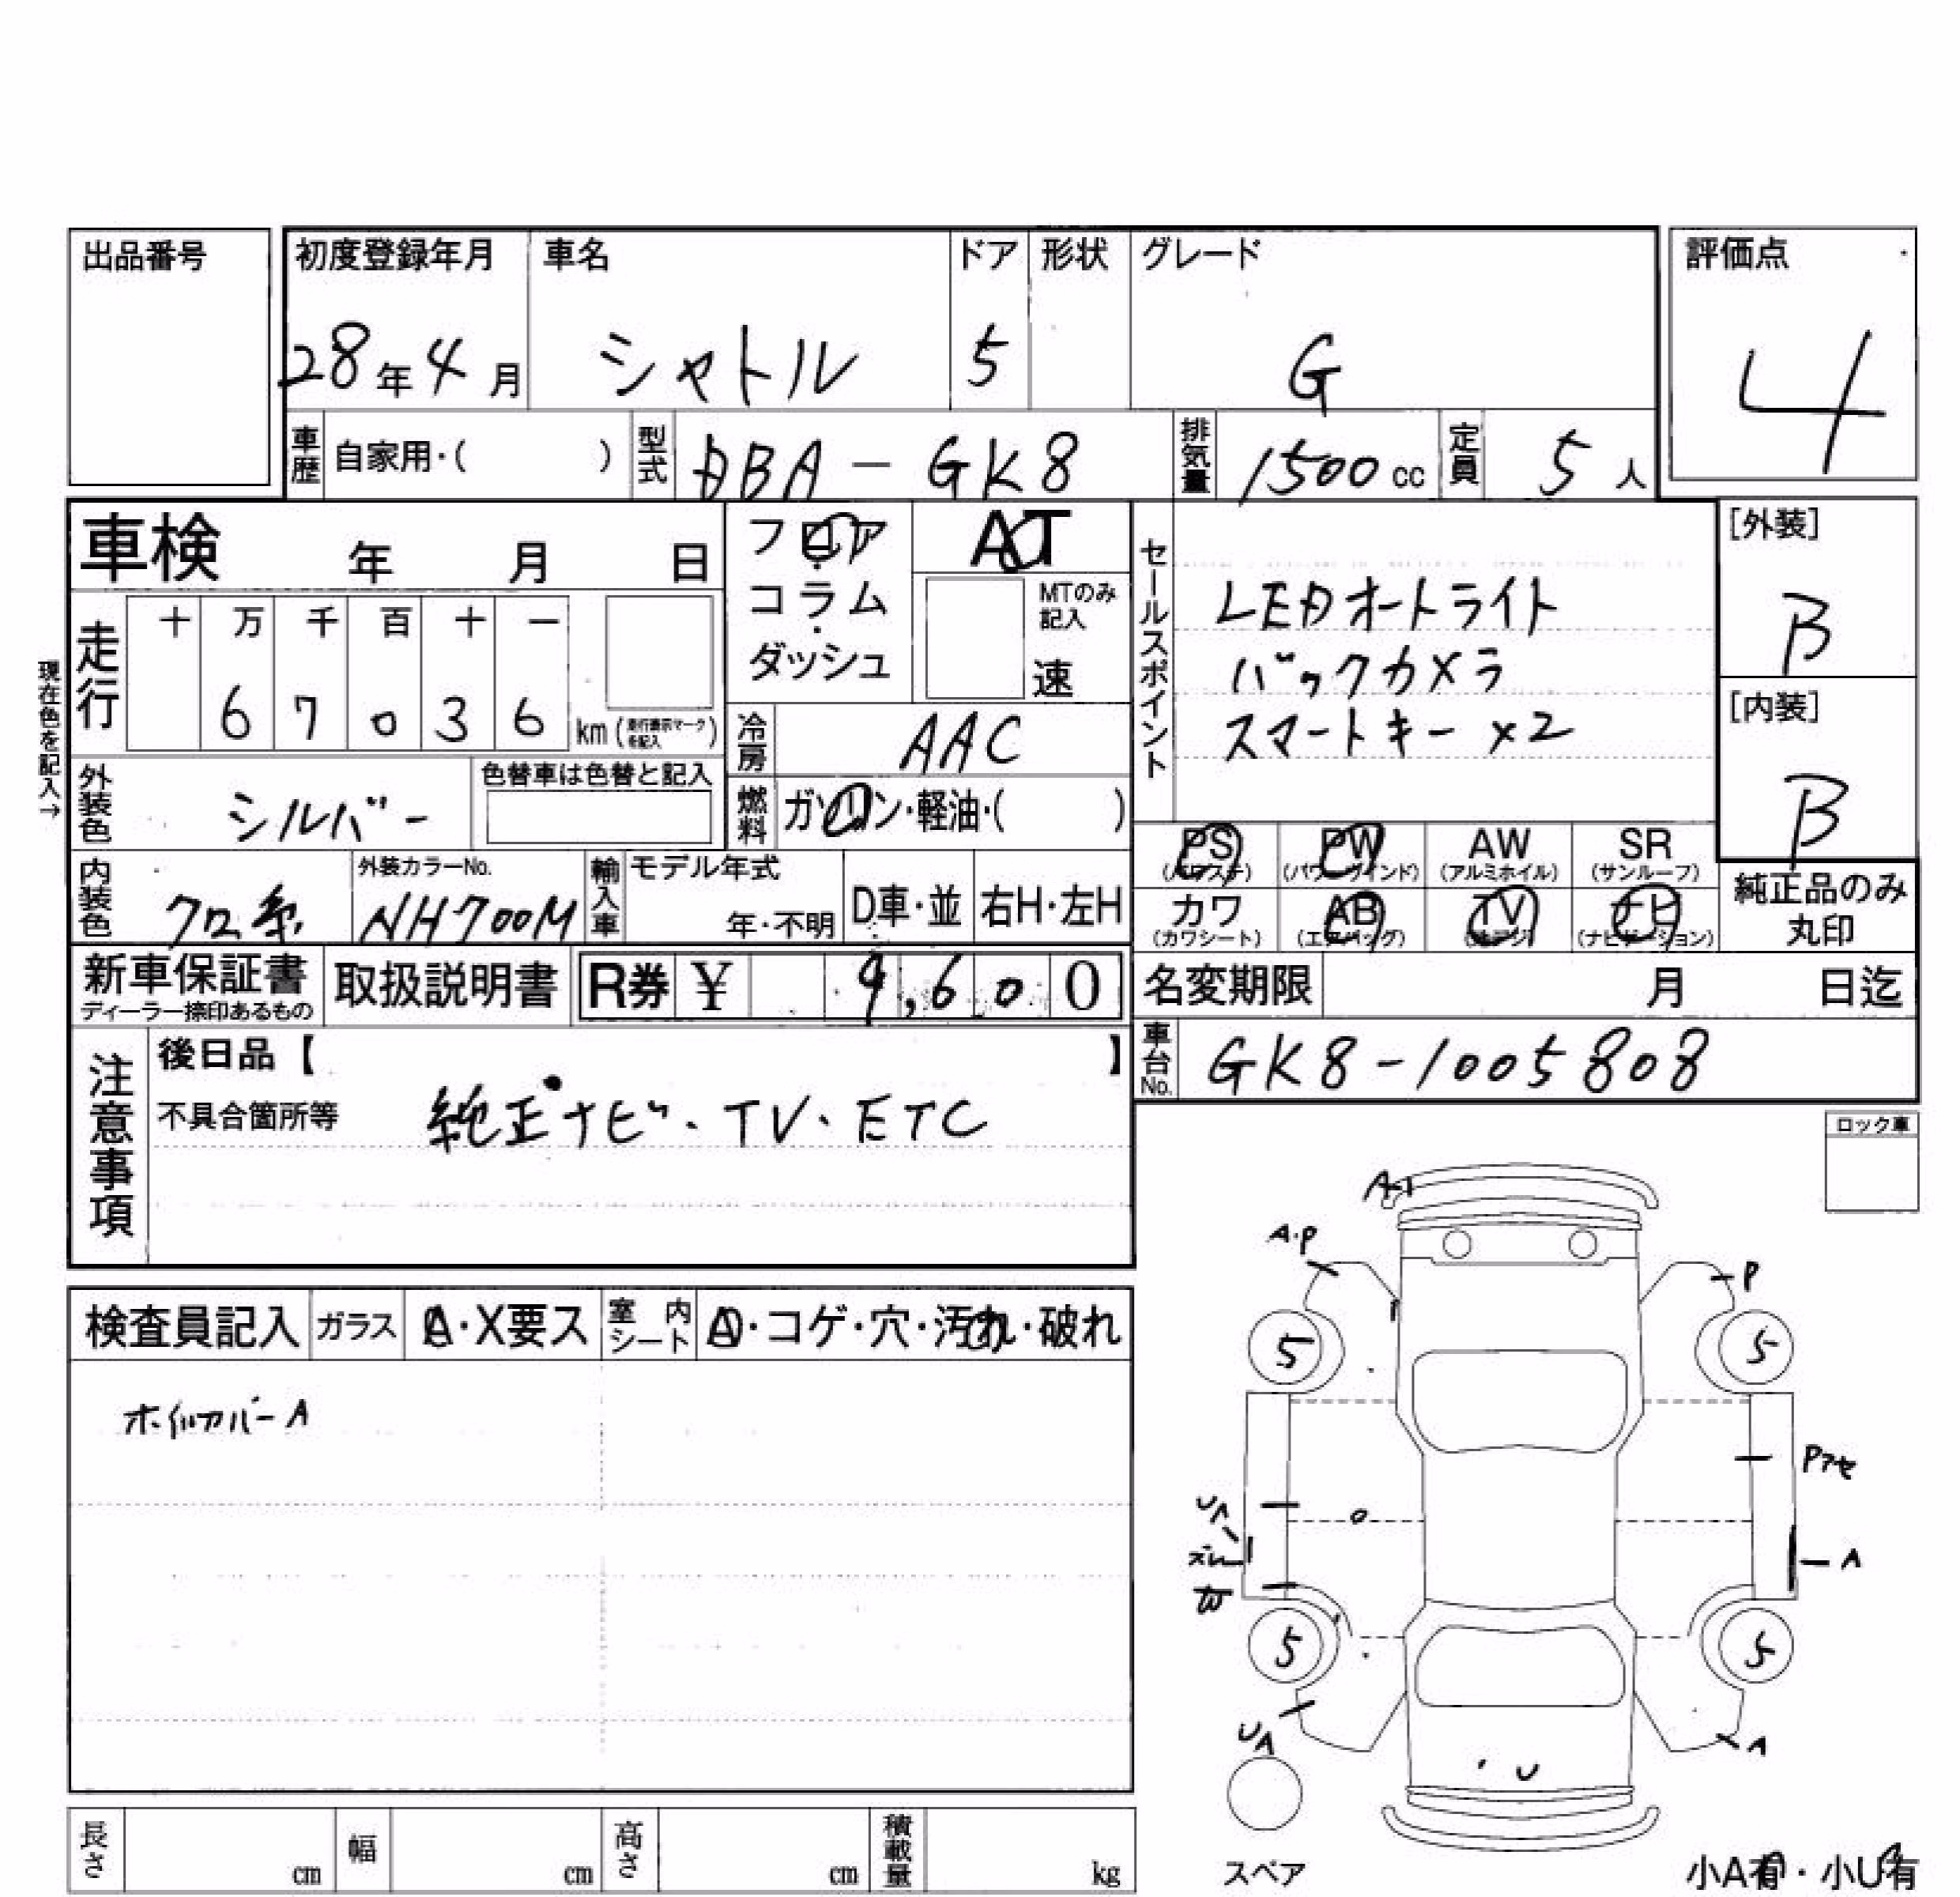 出品番号
初度登録年月 車名 ドア 形状 グレード 評価点
28年4月 シャトル 5 G 4
車歴 自家用・( ) 型式 DBA-GK8 排気量 1500cc 定員 5人
車検 年 月 日
フロア・コラム・ダッシュ
AT
MTのみ記入
速
セールスポイント
LEDオートライト
バックカメラ
スマートキー×2
[外装]
B
[内装]
B
現在色を記入→
走行 十 万 千 百 十 一
6 7 0 3 6 km(走行表示マークを記入)
冷房 AAC
外装色 シルバー
色替車は色替と記入
燃料 ガソリン・軽油・( )
PS PW AW SR
(パワステ) (パワーウインド) (アルミホイル) (サンルーフ)
カワ AB TV ナビ
(カワシート) (エアバッグ) (テレビ) (ナビゲーション)
純正品のみ
丸印
内装色 クロ系
外装カラーNo.
NH700M
輸入車 モデル年式
年・不明 D車・並 右H・左H
新車保証書
ディーラー捺印あるもの
取扱説明書 R券 ¥ 9,600
名変期限 月 日迄
車台No. GK8-1005808
注意事項
後日品【 】
不具合箇所等 純正ナビ・TV・ETC
ロック車
検査員記入 ガラス A・X要ス 室内シート A・コゲ・穴・汚れ・破れ
ホイルカバーA
A-1
A・P
P
5 5
Pアセ
A
W
5 5
UA
A
U
スペア
小A有・小U有
長さ cm 幅 cm 高さ cm 積載量 kg